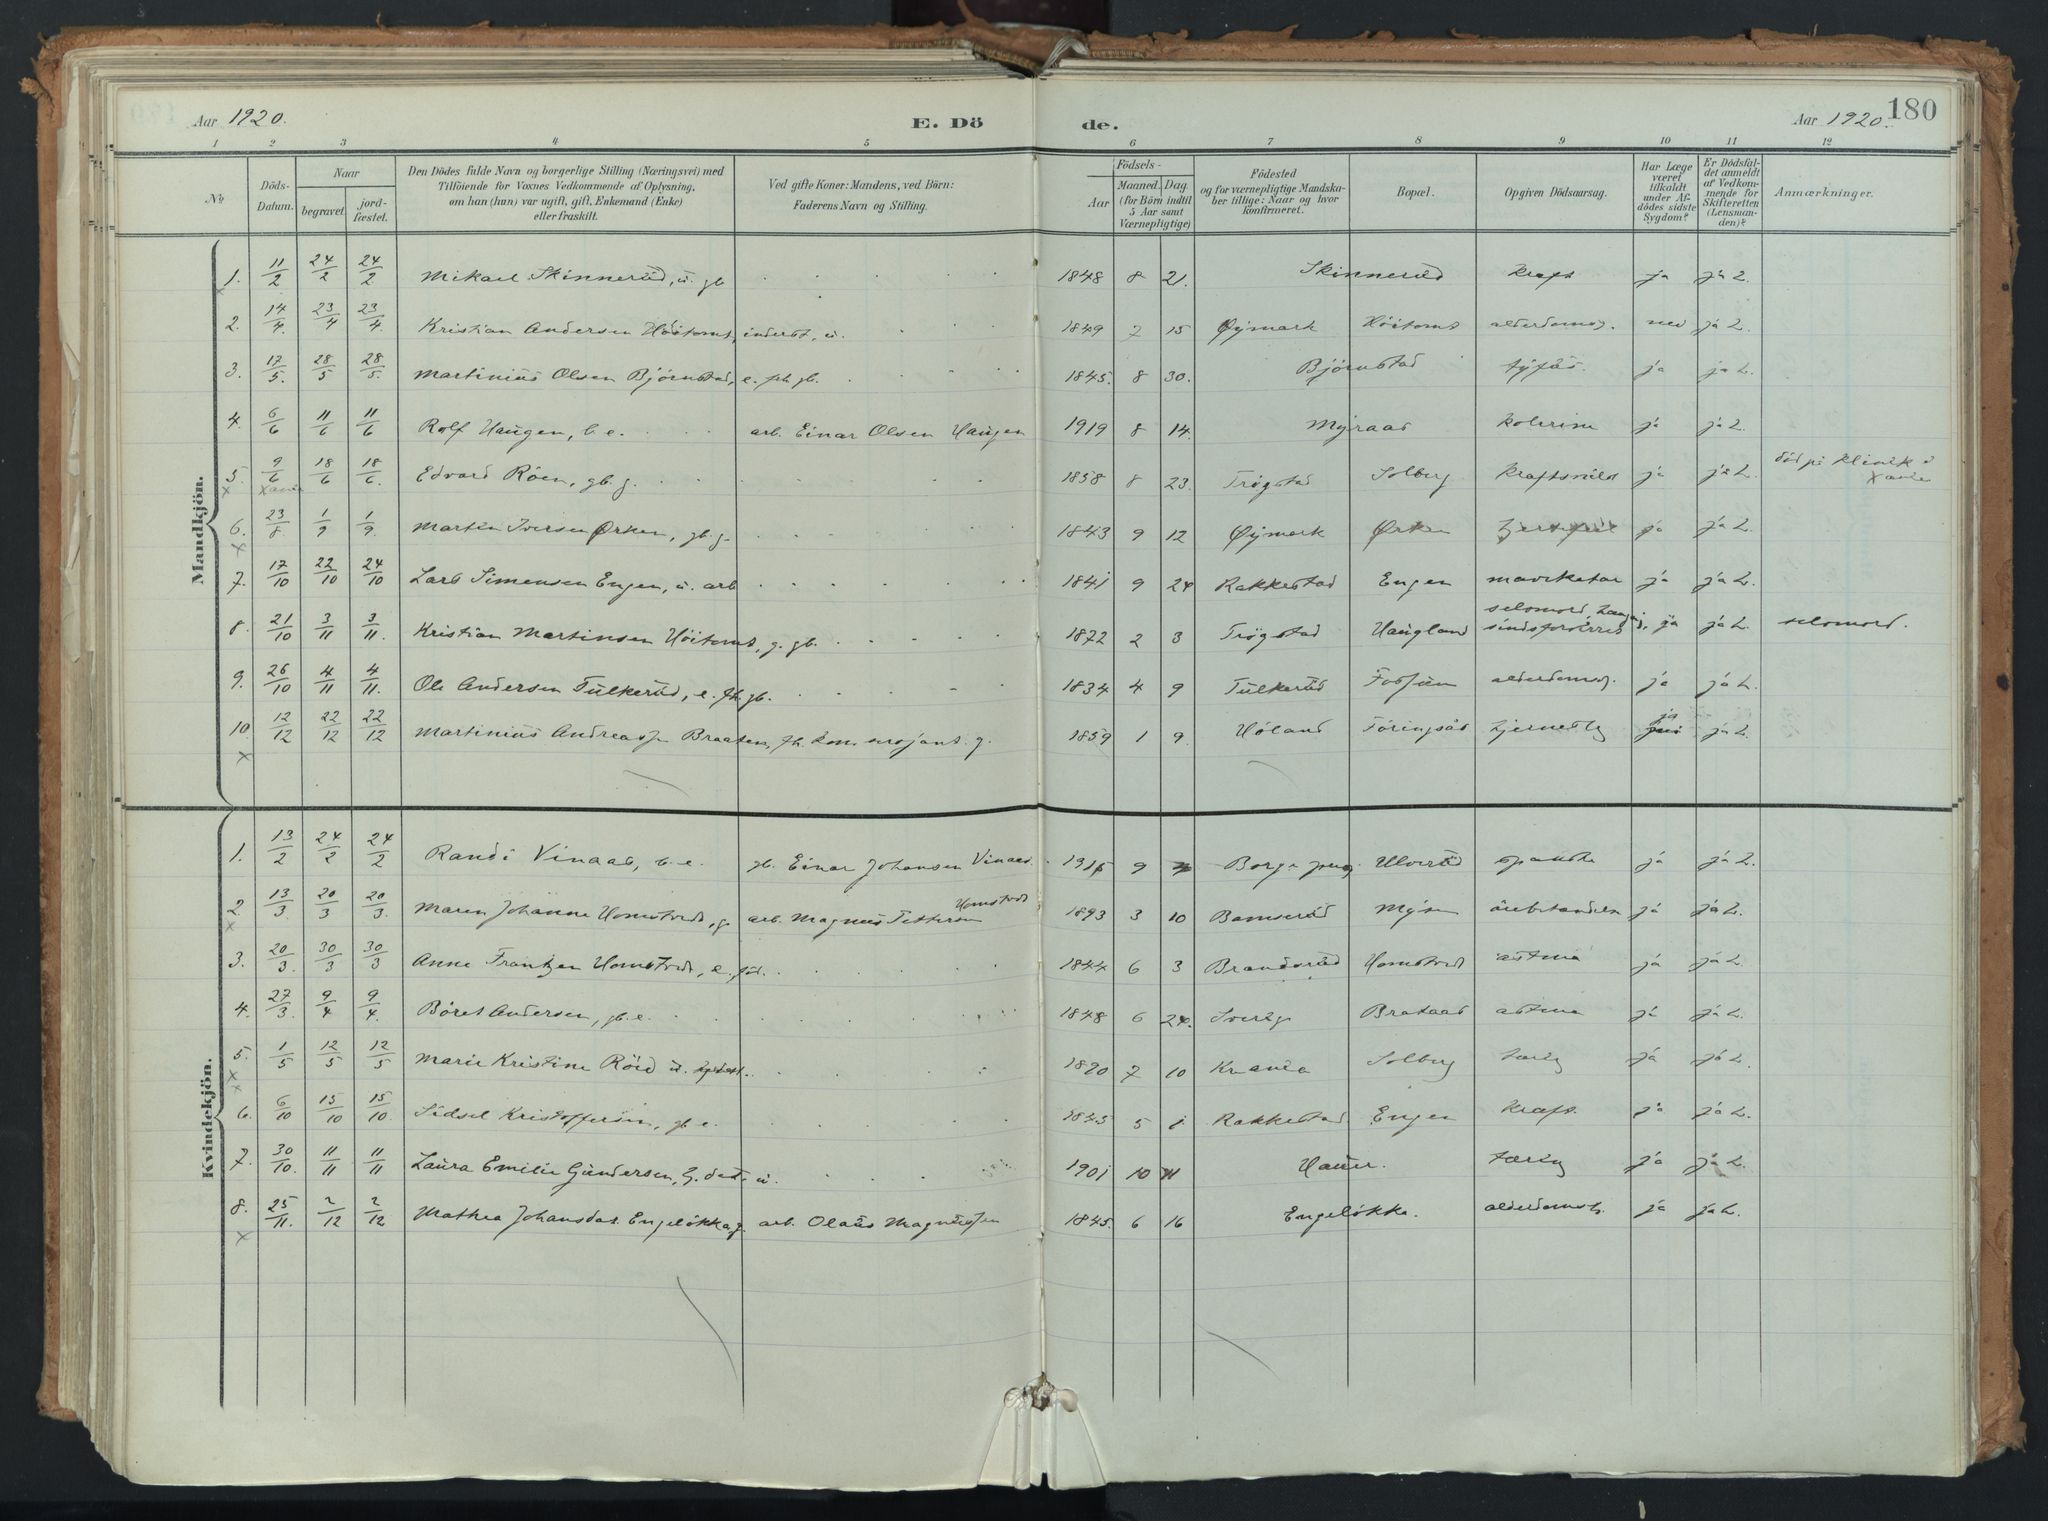 Aar 1920.
E. Dö
de.
Aar 1920.
180
1 2 3 4 5 6 7 8 9 10 11 12
No
Döds-Datum.
Naar
begravet.
jord-fæstet.
Den Dödes fulde Navn og borgerlige Stilling (Næringsvei) med
Tilföiende for Voxnes Vedkommende af Oplysning,
om han (hun) var ugift, gift, Enkemand (Enke)
eller fraskilt.
Ved gifte Koner: Mandens, ved Börn:
Faderens Navn og Stilling.
Födsels-
Aar
Maaned.
Dag.
(for Börn indtil
5 Aar samt
Værnepligtige)
Födested
og for værnepligtige Mandska-
ber tillige: Naar og hvor
konfirmeret.
Bopæl.
Opgiven Dödsaarsag.
Har Læge
været
tilkaldt
under Af-
dödes sidste
Sygdom?
Er Dödsfal-
det anmeldt
af Vedkom-
mende for
Skifteretten
(Lensman-
den)?
Anmærkninger.
Mandkjön.
1. 11/2 24/2 24/2 Mikael Skinnerüd, ü. gb 1848 8 21. Skinnerüd kraft ja ja L.
2. 14/4. 23/4 23/4. Kristian Andersen Höitomt, inderst, ü. 1849 7 15 Øymark Höitomt alderdomss. nei ja L.
3. 17/5. 28/5 28/5. Martinius Olsen Bjørnstad, e. fh. gb. 1845. 8 30. Bjørnstad ja ja L.
4. 6/6 11/6 11/6 Rolf Haugen, b. e. arb. Einar Olsen Haugen 1919 8 14. Myraas kolerine ja ja L.
5. 9/6 18/6 18/6. Edvard Röen, gb. g. 1858 8 23. Trøgstad Solberg kraftsvulst ja ja L. död på klinik i
x
6. 23/8 1/9 1/9. Martin Iversen Ørken, gb. g. 1843 9 12 Øymark Ørken ja ja L.
x
7. 17/10 22/10 24/10 Lars Simensen Engen, ü. arb 1841 9 24 Rakkestad Engen ja ja L.
8. 21/10 3/11 3/11. Kristian Martinsen Höitomt, g. gb. 1872 2 3 Trögstad Haugland selvmord, ja ja L. selvmord.
9. 26/10 4/11 4/11. Ole Andersen Tülkerüd, e. fh. gb. 1834 4 9 Tülkerüd Fossum alderdomss. ja ja L.
10. 12/12 22/12 22/12 Martinius Andreass. Braaten, fh. g. 1859 1 9. Höland ja ja L.
x
Kvindekjön.
1. 13/2 24/2 24/2 Randi Vinaas, b. e. gb. Einar Johansen Vinaas. 9 Borge spanske ja ja L.
2. 13/3. 20/3 20/3. Maren Johanne Homstvedt, g. arb. Magnus Pettersen Homstvedt 1893 3 10 Bamserüd Mysen ja ja L.
x
3. 20/3. 30/3 30/3 Anne Frantzen Homstvedt, e. 1844 6 3 Brandsrüd Homstvedt astma ja ja L.
4. 27/3. 9/4 9/4. Böret Andersen, gb. e. 1848 6 24. Sverig Brataas astma ja ja L.
5. 1/5 12/5 12/5 Marie Kristine Röed ü. 7 10 Kr.ania Solberg ja ja L.
x
x
6. 6/10 15/10 15/10 Sidsel Kristoffersen, gb e. 1845 5 1 Rakkestad Engen kraft. ja ja L.
7. 30/10. 11/11 11/11 Laura Emilie Gundersen, G. dat. ü. 1901 10 11 ja ja L.
8. 25/11. 2/12 2/12 Mathea Johansdat. Engelökka g. arb. Olaus Magnussen 1845. 6 16 Engelökka. ja ja L.
x